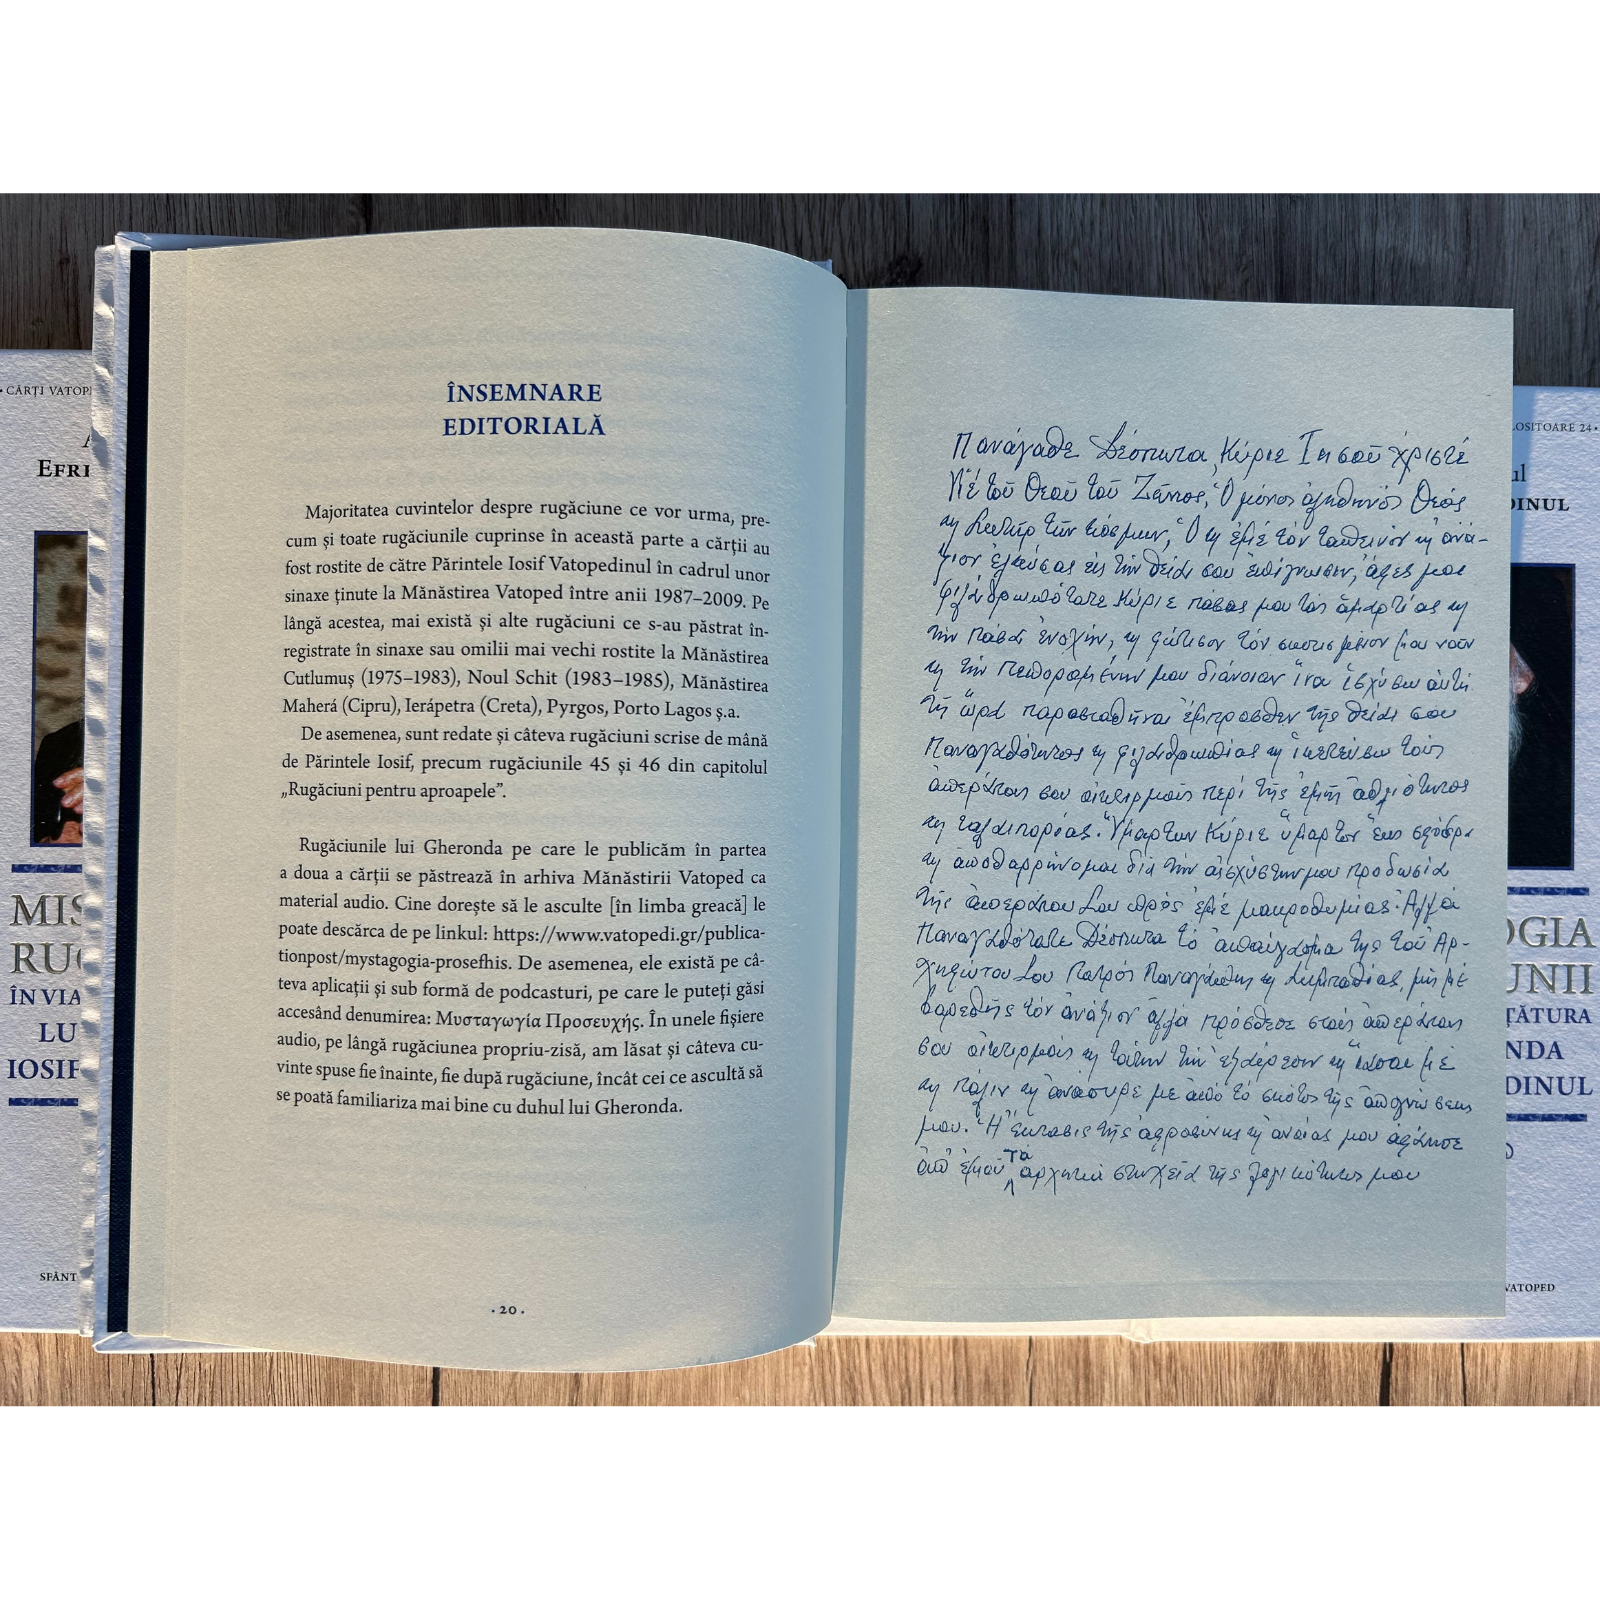 • CĂRȚI VATOP
EFRI
MIS
RUG
ÎN VIA
LU
IOSIF
SFÂNT
ÎNSEMNARE
EDITORIALĂ
Majoritatea cuvintelor despre rugăciune ce vor urma, pre-
cum și toate rugăciunile cuprinse în această parte a cărții au
fost rostite de către Părintele Iosif Vatopedinul în cadrul unor
sinaxe ținute la Mănăstirea Vatoped între anii 1987–2009. Pe
lângă acestea, mai există și alte rugăciuni ce s-au păstrat în-
registrate în sinaxe sau omilii mai vechi rostite la Mănăstirea
Cutlumuș (1975–1983), Noul Schit (1983–1985), Mănăstirea
Maherá (Cipru), Ierápetra (Creta), Pyrgos, Porto Lagos ș.a.
De asemenea, sunt redate și câteva rugăciuni scrise de mână
de Părintele Iosif, precum rugăciunile 45 și 46 din capitolul
„Rugăciuni pentru aproapele”.
Rugăciunile lui Gheronda pe care le publicăm în partea
a doua a cărții se păstrează în arhiva Mănăstirii Vatoped ca
material audio. Cine dorește să le asculte [în limba greacă] le
poate descărca de pe linkul: https://www.vatopedi.gr/publica-
tionpost/mystagogia-prosefhis. De asemenea, ele există pe câ-
teva aplicații și sub formă de podcasturi, pe care le puteți găsi
accesând denumirea: Μυσταγωγία Προσευχής. În unele fișiere
audio, pe lângă rugăciunea propriu-zisă, am lăsat și câteva cu-
vinte spuse fie înainte, fie după rugăciune, încât cei ce ascultă să
se poată familiariza mai bine cu duhul lui Gheronda.
• 20 •
Πανάγαθε Δέσποτα, Κύριε Ἰησοῦ Χριστέ
Υἱέ τοῦ Θεοῦ τοῦ Ζῶντος, Ὁ μόνος ἀληθινός Θεός
Σωτήρ τῶν Ὁ ἐμέ τόν ταπεινόν ἀνά-
ξιον ἑλκύσας εἰς τήν θεία σου ἐπίγνωσιν, ἄφες μοι
φιλανθρωπότατε Κύριε πάσας μου τάς ἁμαρτίας
τήν πᾶσα ἐνοχήν, φώτισον τόν σκοτισμένον μου νοῦν
τήν πεπορωμένην μου διάνοιαν ἵνα ἰσχύσω αὐτή
τῇ ὥρα παρασταθῆναι ἔμπροσθεν τῆς θεία σου
Παναγαθότητος φιλανθρωπίας ἱκετεύσω τούς
σου οἰκτιρμούς περί τῆς ἐμῆς ἀθλιότητος
ταλαιπορίας. Κύριε
ἀποθαρρύνομαι διά τήν μου προδωσία
τῆς Σου πρός ἐμέ μακροθυμίας. Ἀλλά
Παναγαθότατε Δέσποτα τό ἀπαύγασμα τῆς τοῦ Ἀρ-
Σου Πατρός μή μέ
τόν ἀνάξιον ἀλλά πρόσθεσε στούς
σου οἰκτιρμούς μέ
πάλιν ἀνάσυρε με ἀπό τό σκότος τῆς ἀπογνώσεως
μου. Ἡ ἔκτασις τῆς ἀφροσύνης ἀνοίας μου ἀφάνησε
ἀπ' ἐμοῦ τά ἀρχικά στοιχεῖα τῆς λογικότητος μου
LOSITOARE 24 •
ul
DINUL
OGIA
UNII
ȚĂTURA
NDA
DINUL
VATOPED